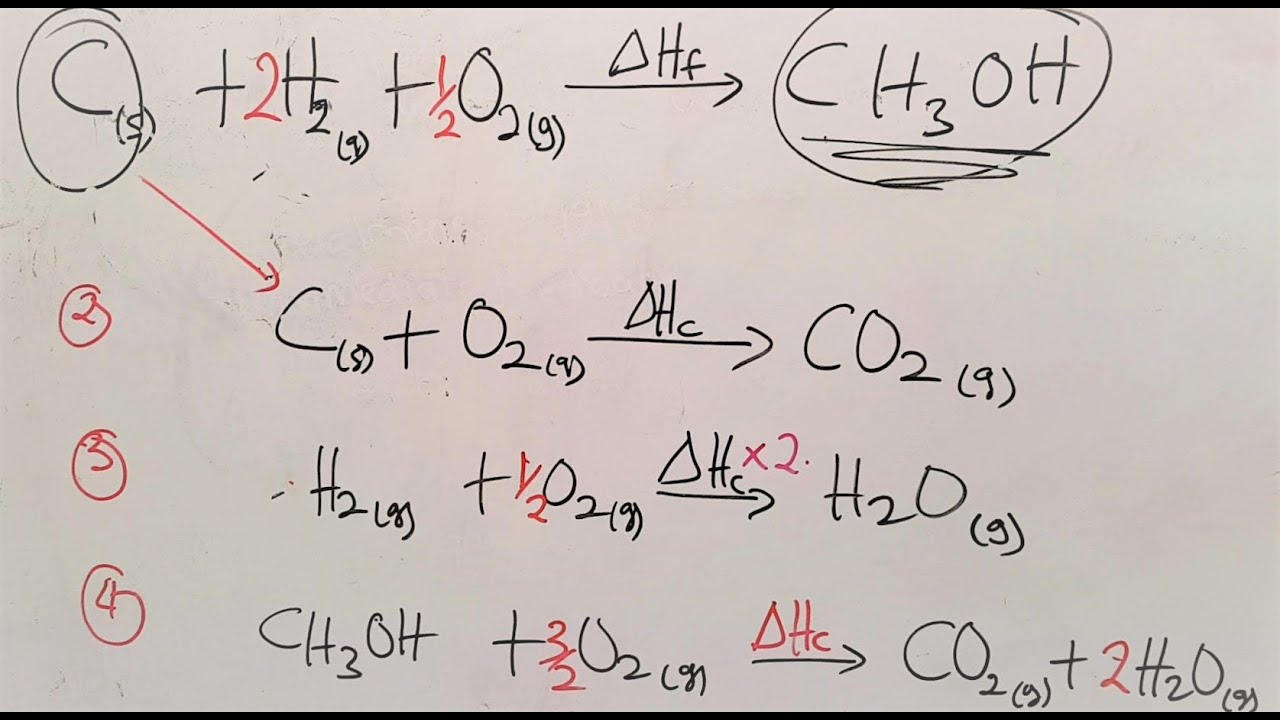 C(s) + 2H₂(g) + ½O₂(g) ΔHf → CH₃OH
② C(s) + O₂(g) ΔHc → CO₂(g)
③ H₂(g) + ½O₂(g) ΔHc ×2. → H₂O(g)
④ CH₃OH + 3/2 O₂(g) ΔHc → CO₂(g) + 2H₂O(g)